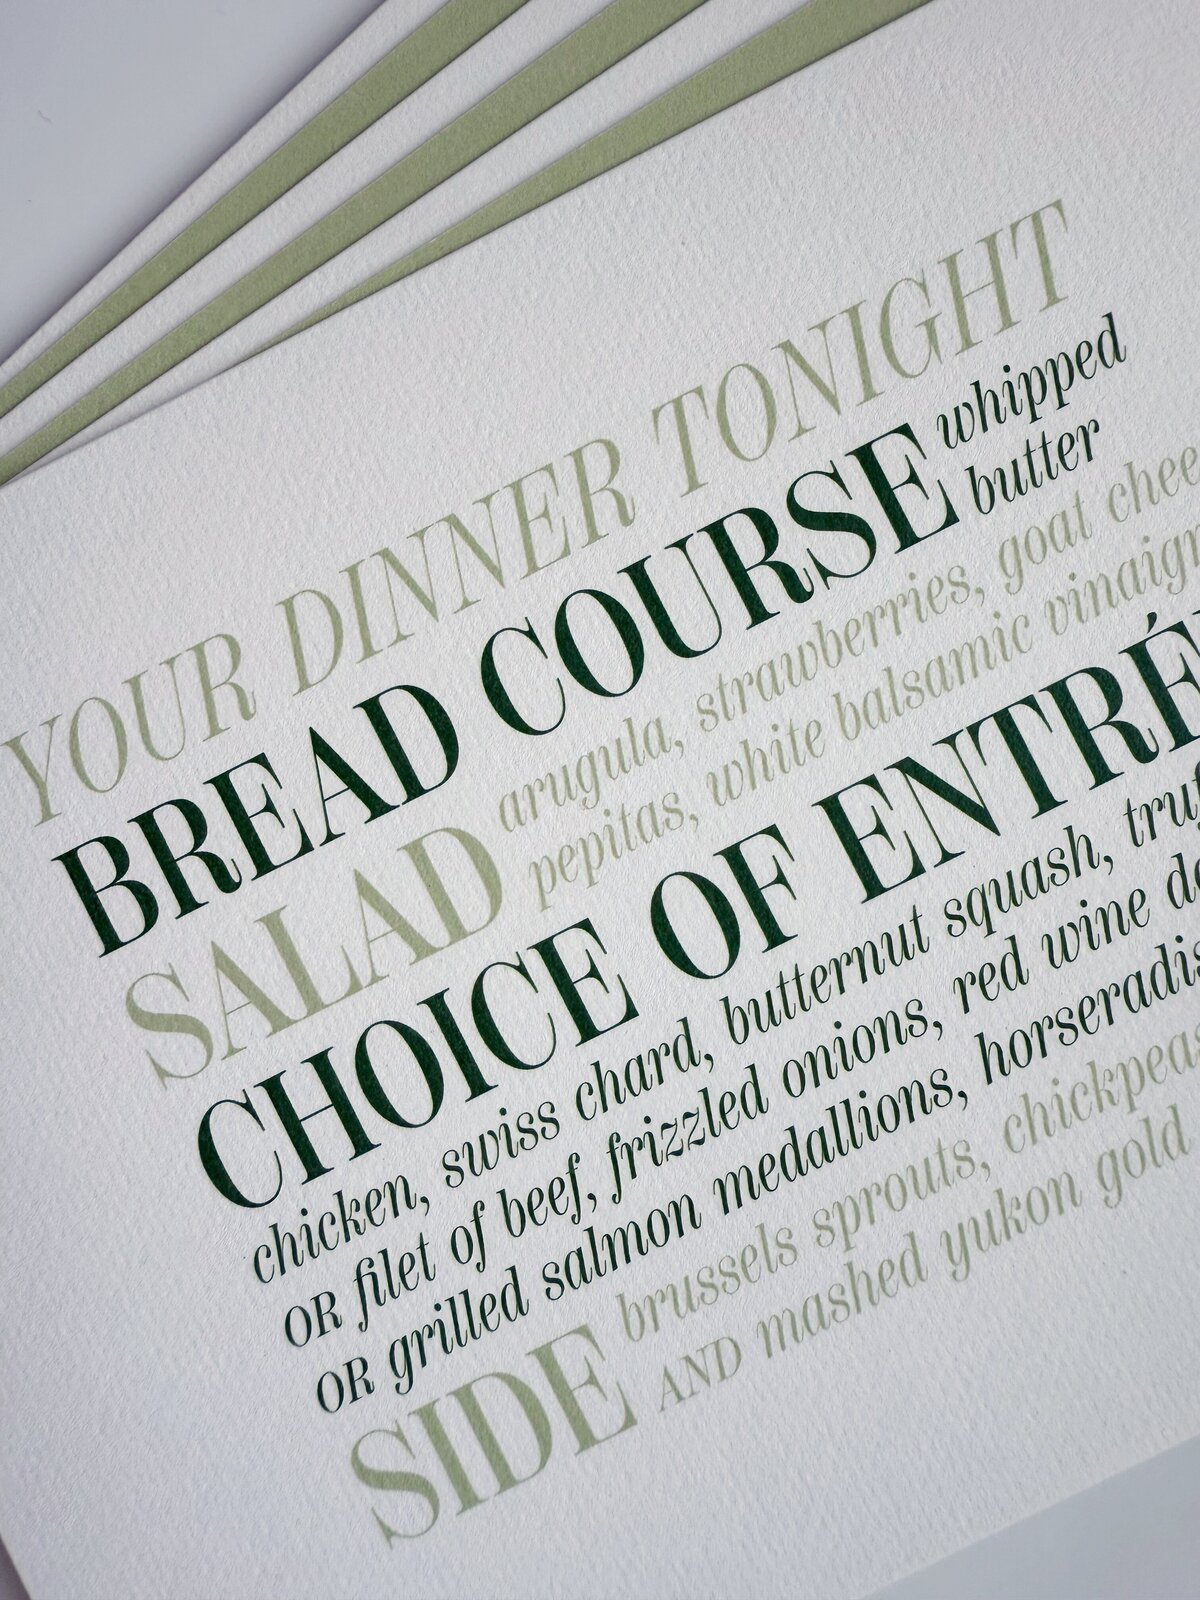 YOUR DINNER TONIGHT
BREAD COURSE whipped
butter
SALAD arugula, strawberries, goat
pepitas, white balsamic
CHOICE OF
chicken, swiss chard, butternut squash,
OR filet of beef, frizzled onions, red wine
OR grilled salmon medallions,
SIDE brussels sprouts,
AND mashed yukon gold